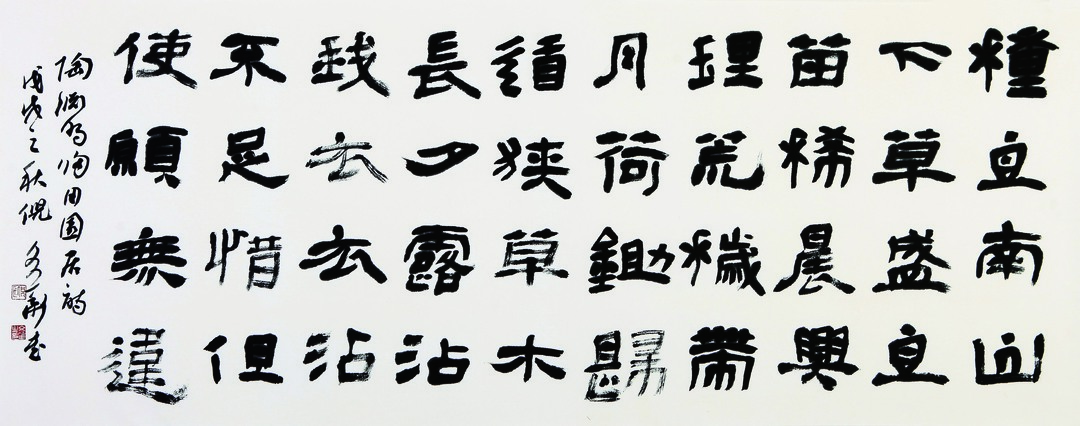 種豆南山
下草盛豆
苗稀晨興
理荒穢帶
月荷鋤歸
道狹草木
長夕露沾
我衣衣沾
不足惜但
使願無違
陶淵明歸田園居詩
戊戌之秋倪文華書